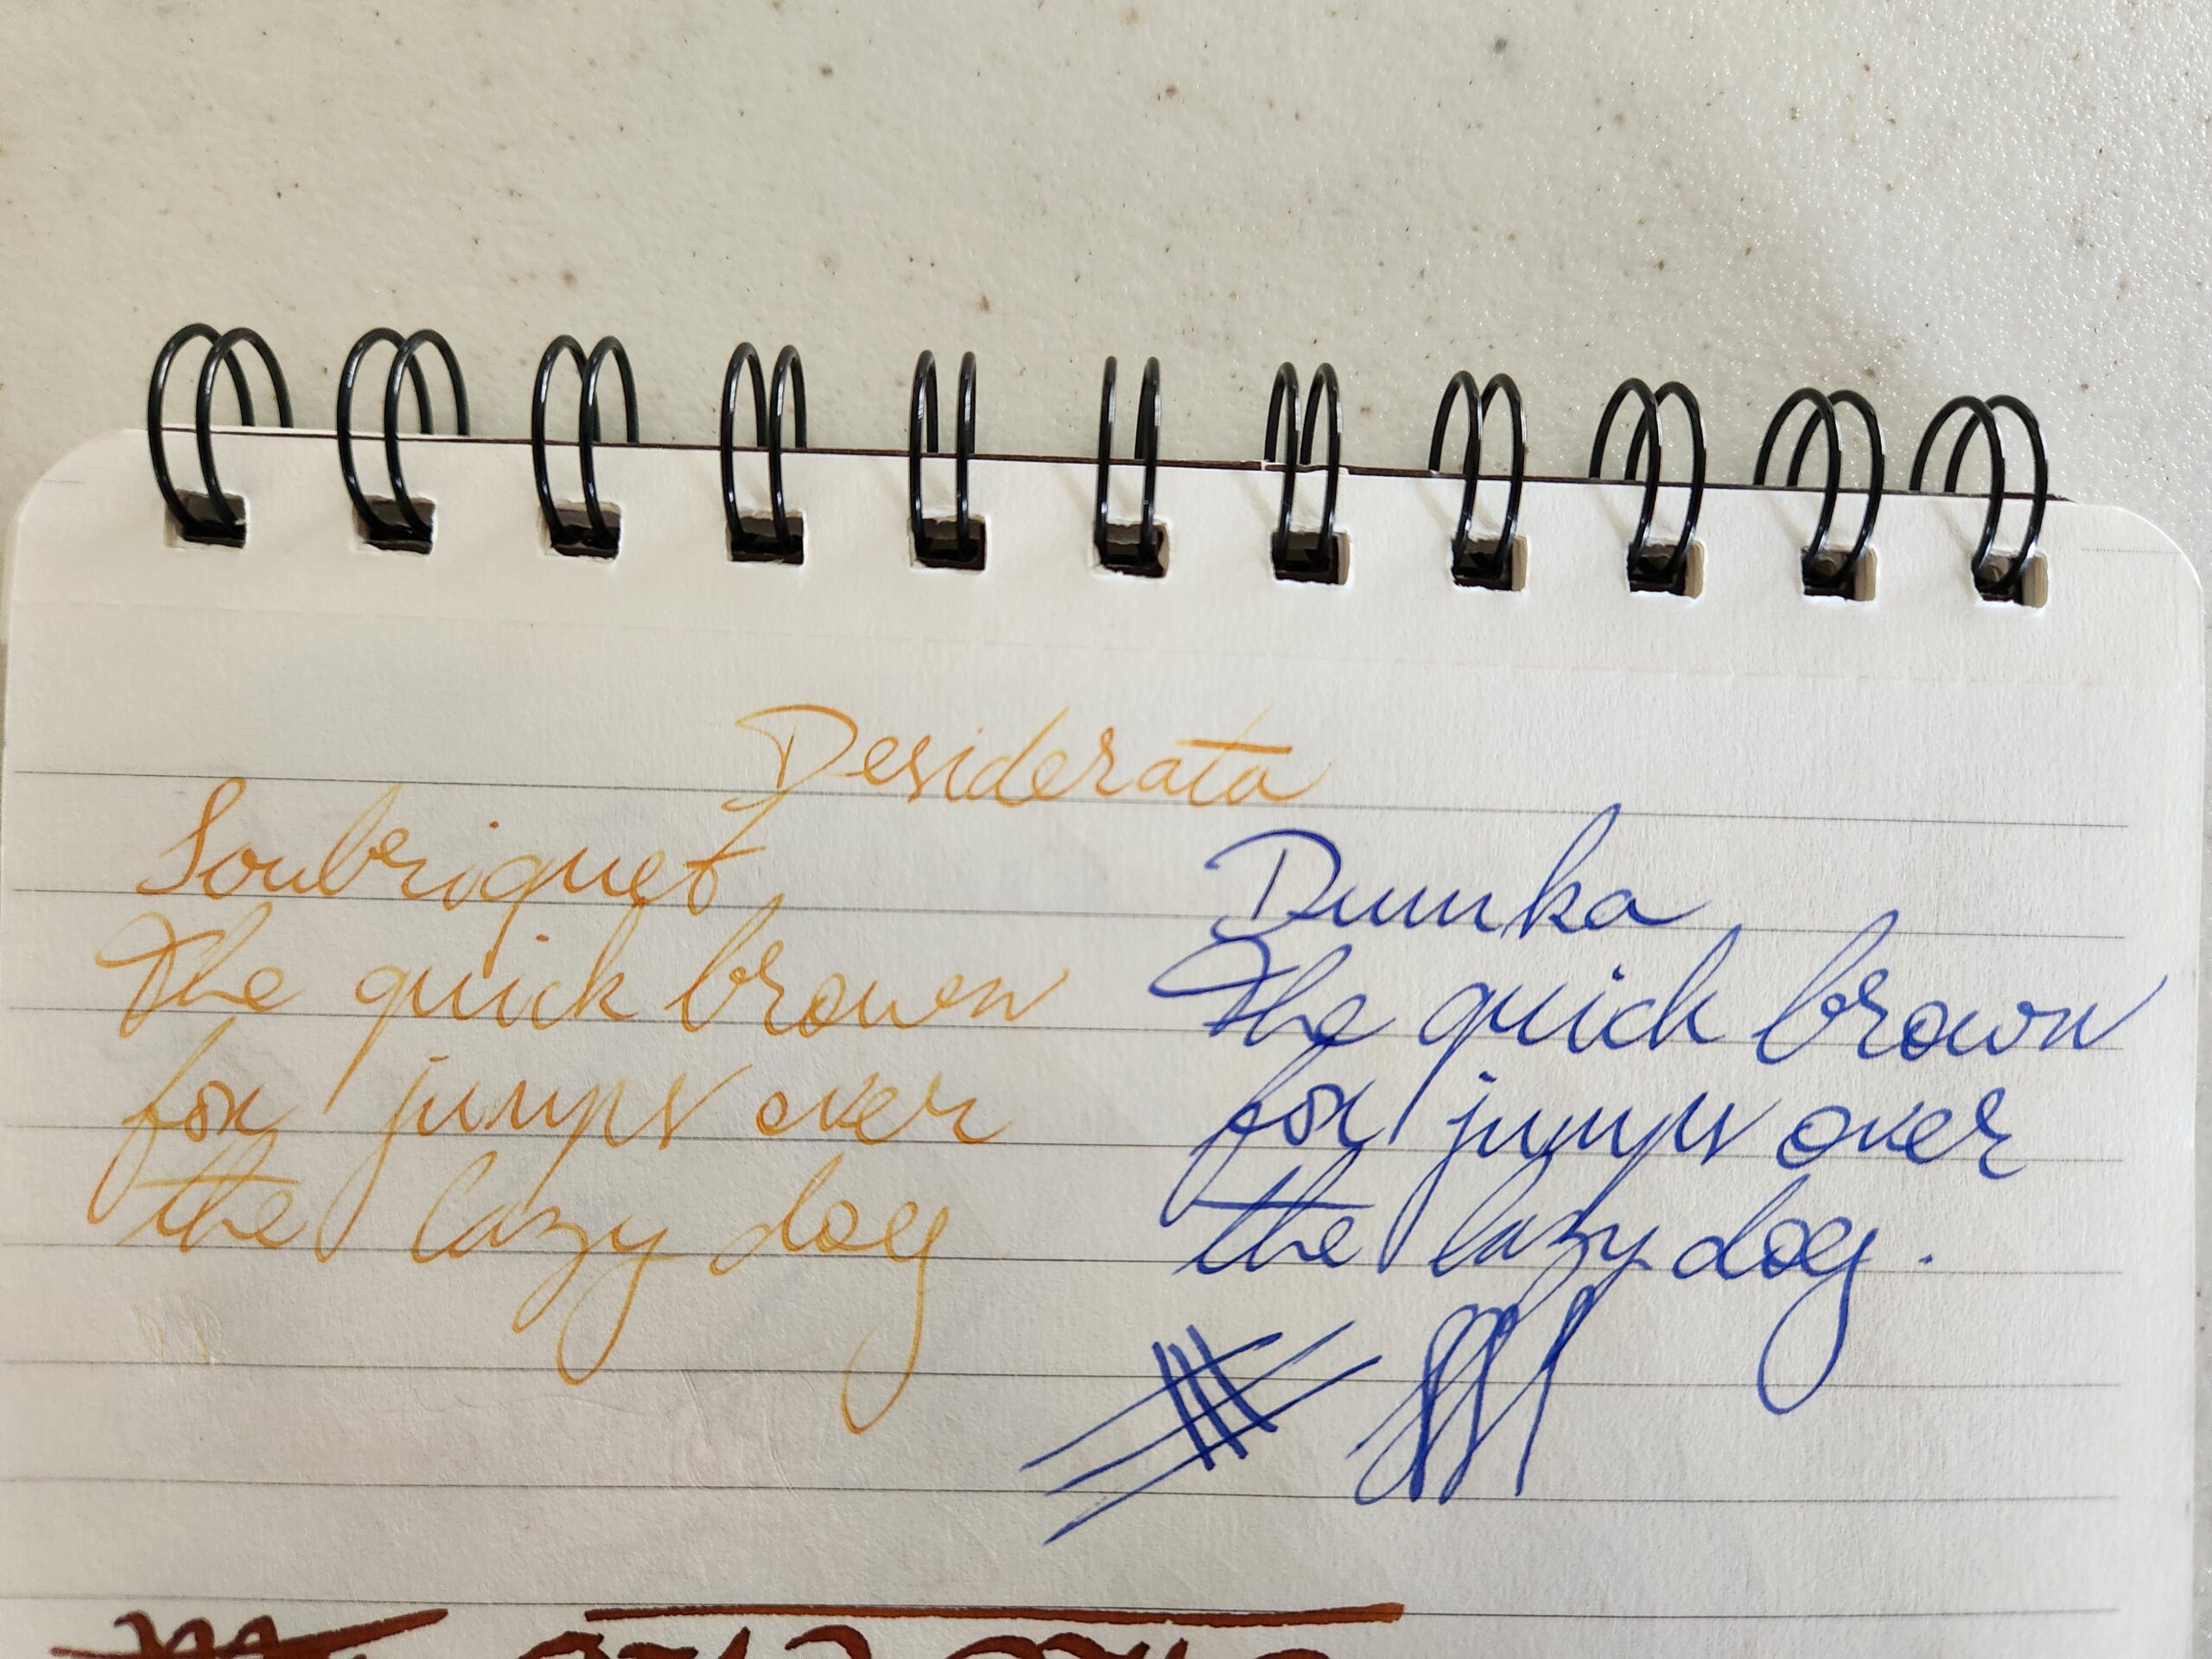 Desiderata
Soubriquet
The quick brown
fox jumps over
the lazy dog
Dumka
The quick brown
fox jumps over
the lazy dog.